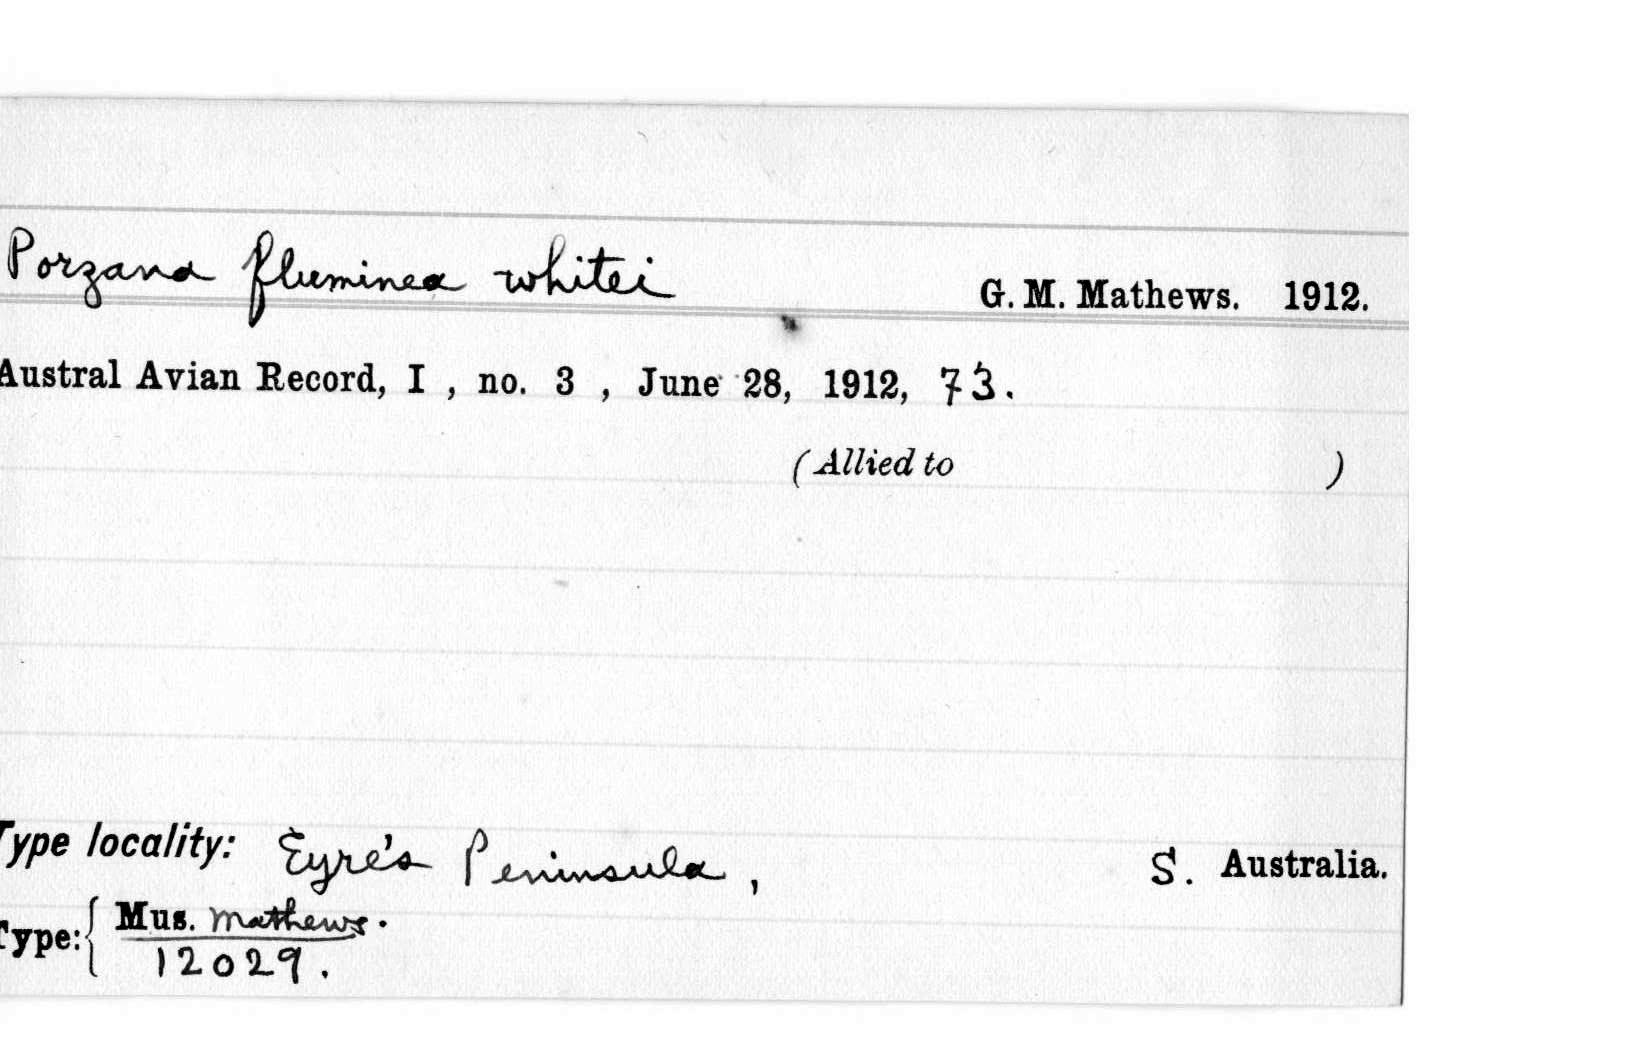 Porzana fluminea whitei G. M. Mathews. 1912.
Austral Avian Record, I , no. 3 , June 28, 1912, 73.
(Allied to )
Type locality: Eyre's Peninsula, S. Australia.
Type: { Mus. Mathews.
12029.